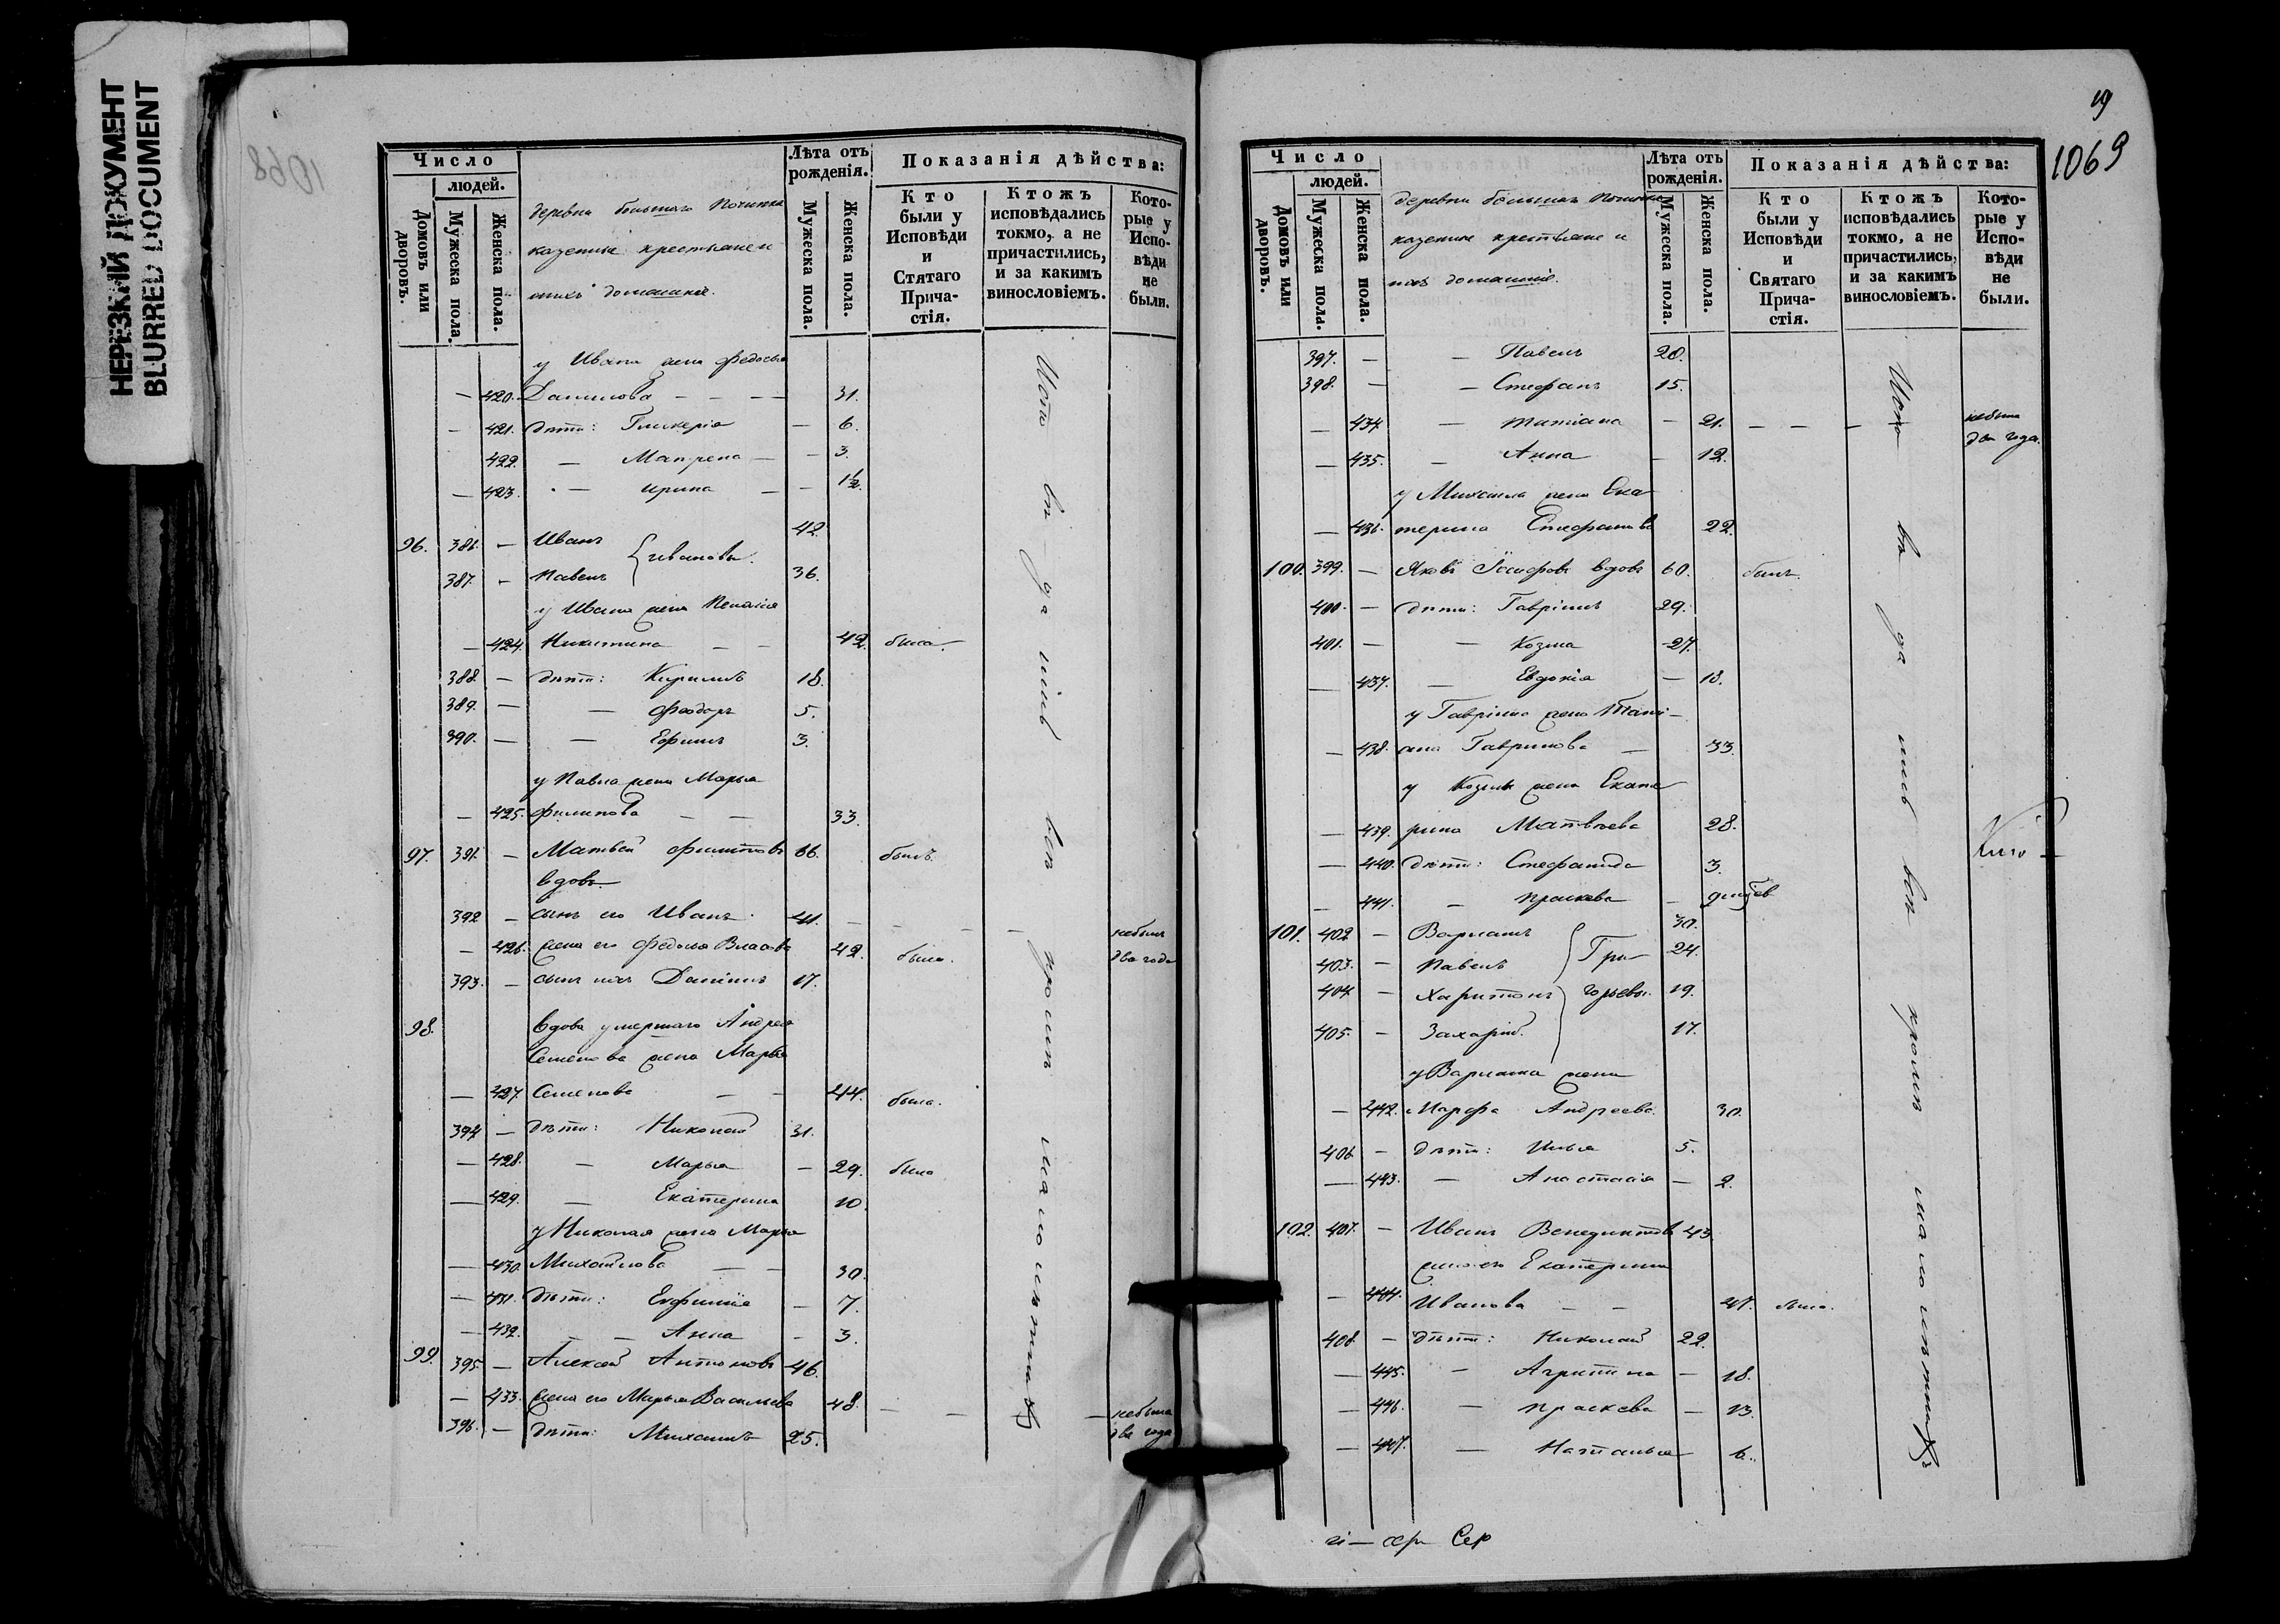 НЕРЕЗКИЙ ДОКУМЕНТ
BLURRED DOCUMENT
1068
Число
людей.
Домовъ или дворовъ.
Мужеска пола.
Женска пола.
деревни большаго Починка
казенные крестьяне и
ихъ домашніе.
Лѣта отъ рожденія.
Мужеска пола.
Женска пола.
Показанія дѣйства:
Кто были у Исповѣди и Стятаго Причастія.
Ктожъ исповѣдались токмо, а не причастились, и за какимъ винословіемъ.
Которые у Исповѣди не были.
у Ивана жена Федосья
— 420. Данилова — — — 31.
— 421. дѣти: Гликерія — 6.
422. — Матрена — — 3.
— 423. — Ирина — — 1½.
96. 386. — Иванъ 42
387. — Павелъ Ивановы. 36.
у Ивана жена Пелагія
— 424. Никитина — — 42. была.
388. — дѣти: Кирилъ 18.
389. — — Феодоръ 5.
390. — — Ефимъ 3.
у Павла жена Марья
— 425. Филипова — — 33.
97. 391. — Матвей Филиповъ 66. былъ.
вдовъ.
392 — сынъ его Иванъ. 41. — небылъ
— 426. жена его Федосья Власова 42. была. два года
393. — сынъ ихъ Данилъ 17.
98. Вдова умершаго Андрея
Семенова жена Марья
— 427. Семенова — — 44. была.
394. — дѣти: Николай 31.
— 428. — Марья — 29. была
— 429. — Екатерина 10.
у Николая жена Марья
— 430. Михайлова — — 30.
— 431. дѣти: Евфимія — 7.
— 432. — — Анна — 3.
99. 395. — Алексей Антоновъ 46.
— 433. жена его Марья Васильева 48. — — — небыла
396. — дѣти: Михаилъ 25. два года
19
1069
Число
людей.
Домовъ или дворовъ.
Мужеска пола.
Женска пола.
деревни большаго Починка
казенные крестьяне и
ихъ домашніе.
Лѣта отъ рожденія.
Мужеска пола.
Женска пола.
Показанія дѣйства:
Кто были у Исповѣди и Святаго Причастія.
Ктожъ исповѣдались токмо, а не причастились, и за какимъ винословіемъ.
Которые у Исповѣди не были.
397. — — Павелъ 20.
398. — — Стефанъ 15.
— 434. — Татіана — 21. — — — небыла
два года.
— 435. — Анна — 12.
у Михаила жена Ека
— 436. терина Стефанова 22.
100. 399. — Яковъ Іосифовъ вдовъ 60. былъ.
400. — дѣти: Гавріилъ 29.
401. — — Козма 27.
— 437. — Евдокія — 18.
у Гавріила жена Тати-
— 438. ана Гаврилова — 33.
у Козмы жена Екате
— 439. рина Матвѣева 28.
— 440. дѣти: Стефанида 3.
— 441. — Праскева —
101. 402 — Варламъ 30.
403. — Павелъ Гри- 24.
404 — Харитонъ горьевы. 19.
405. — Захарій. 17.
у Варлама жена
— 442. Марфа Андреева. 30.
406 — дѣти: Илья 5.
— 443. — Анастасія — 2.
102. 407. — Иванъ Венедиктовъ 43.
жена его Екатерина
— 444. Иванова — — 47. была.
408. — дѣти: Николай 22.
— 445. — Агрипина — 18.
— 446. — Праскева — 13.
— 447. — Наталья 6.